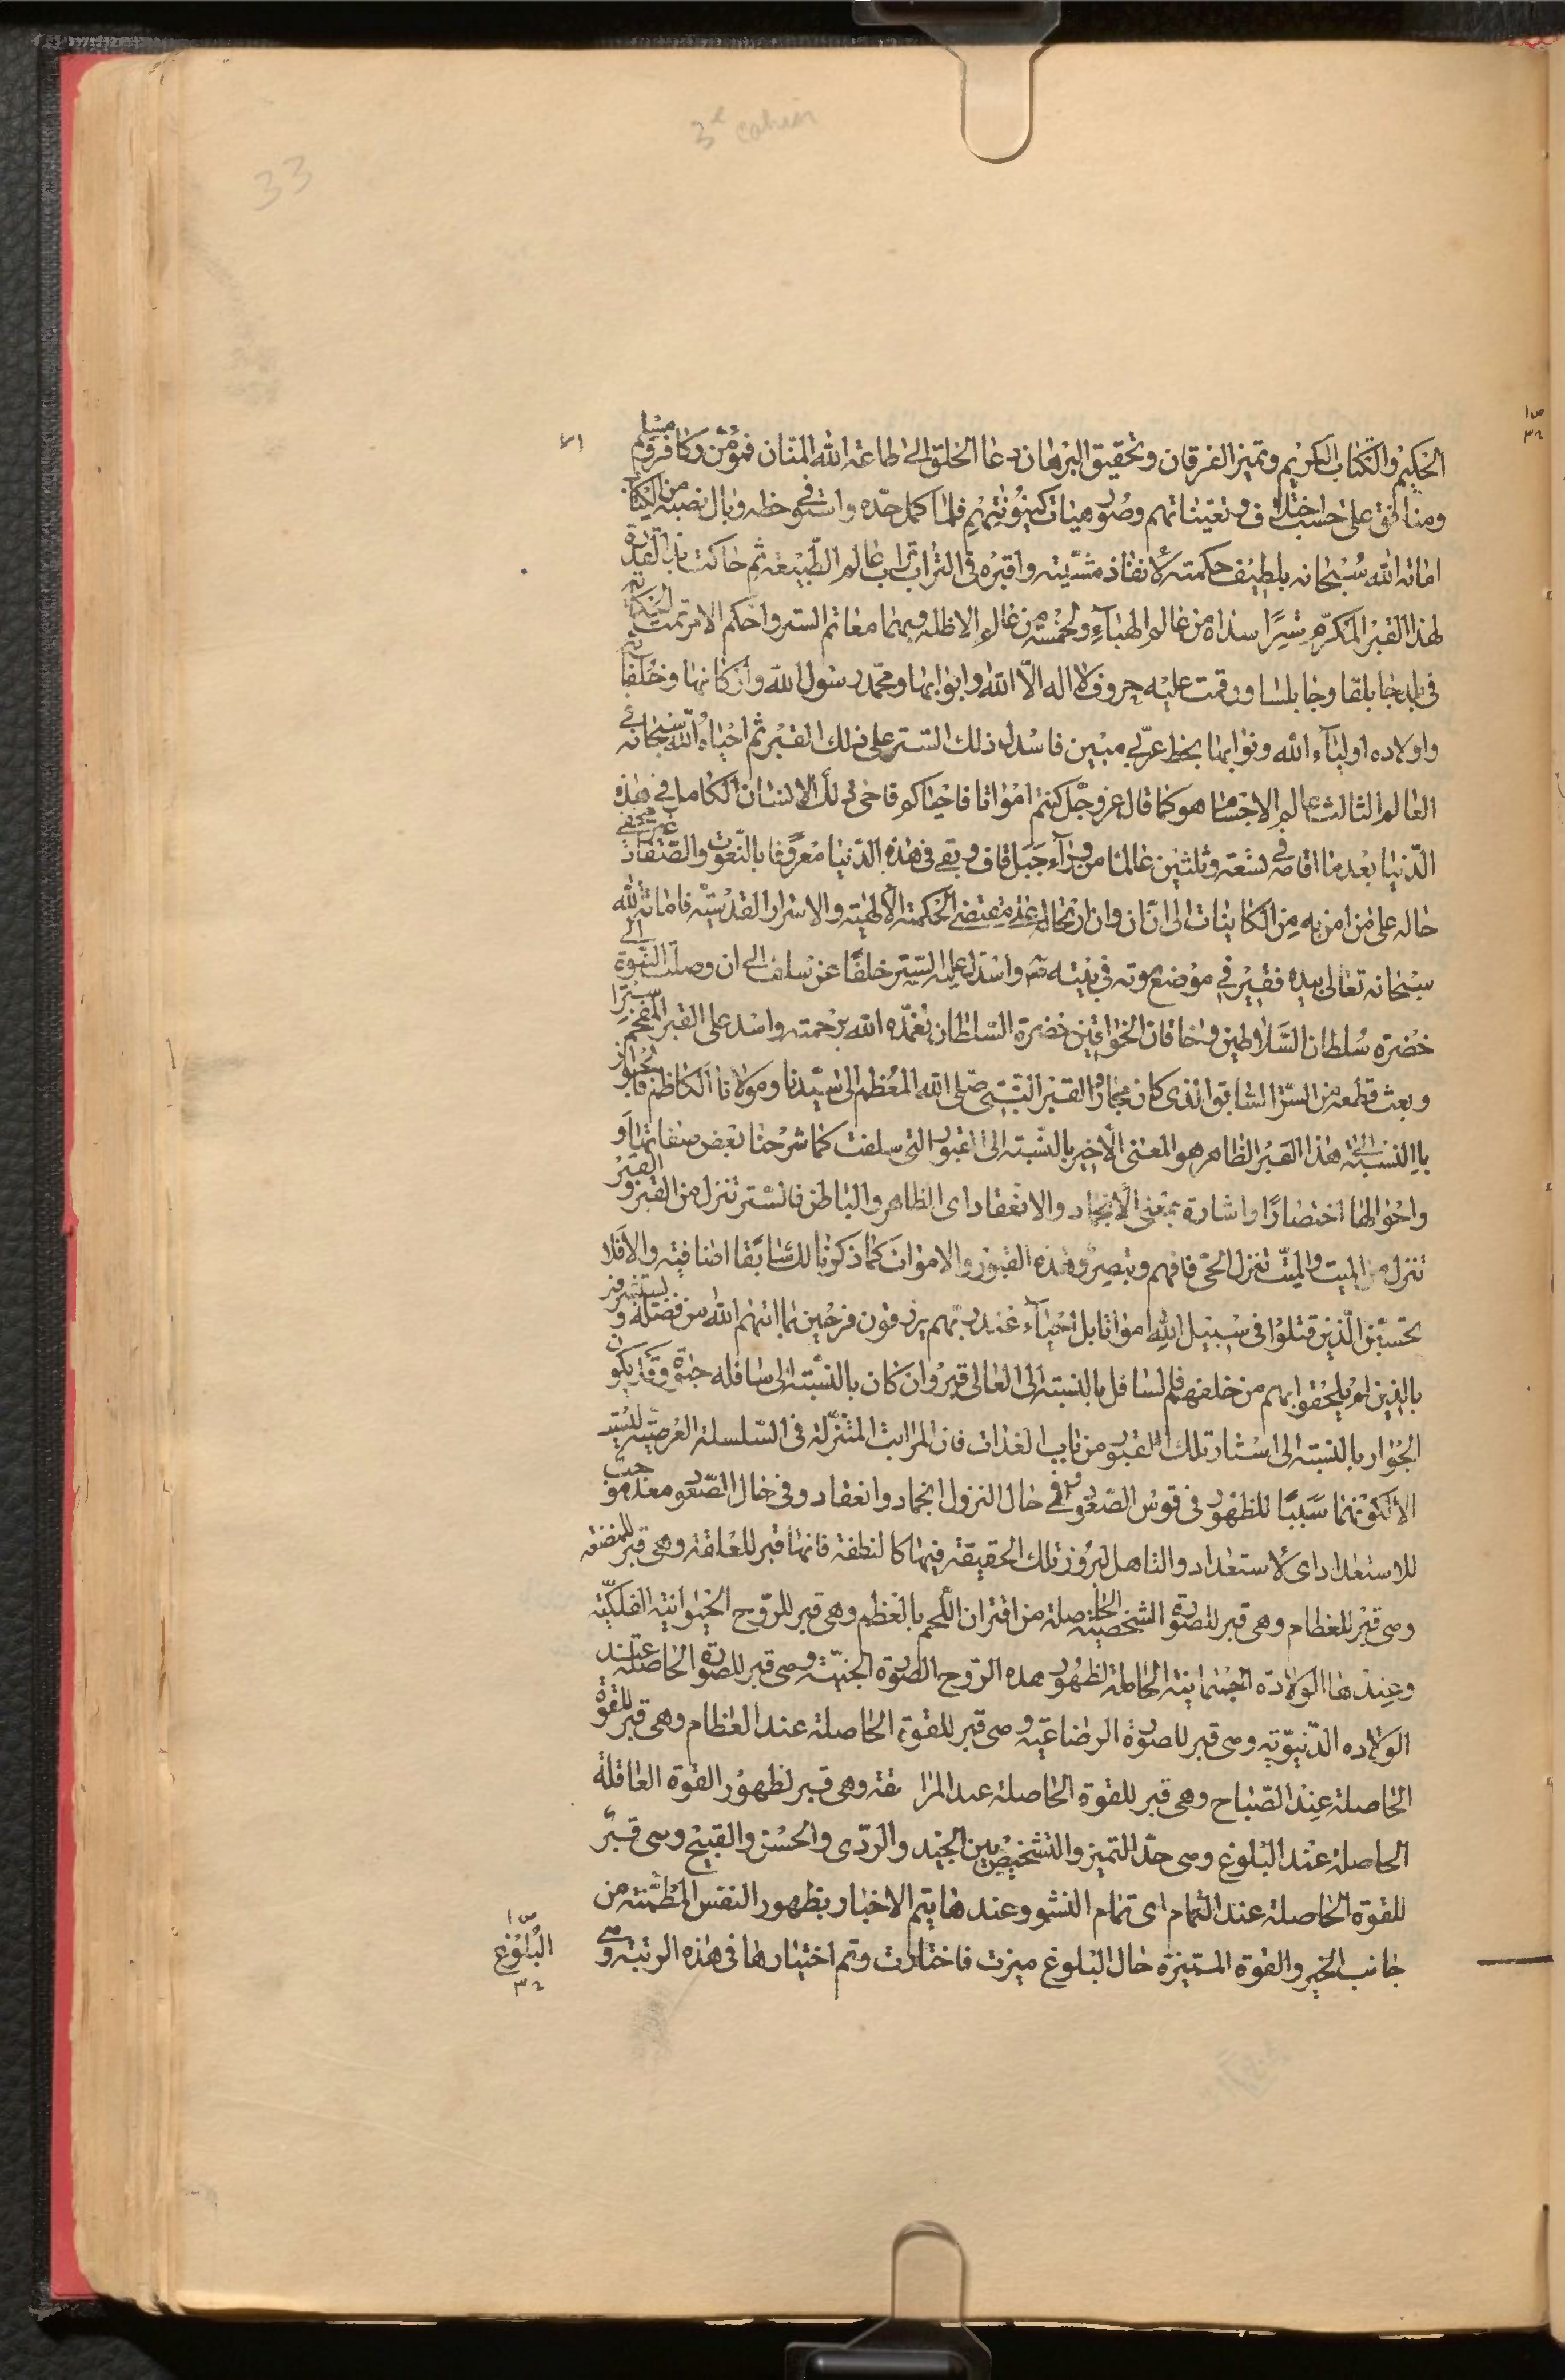 3e cahier
33
الحكيم والكتاب الكريم وتميز الفرقان وتحقيق البرهان دعا الخلق الى طاعة الله المنان فمؤمن وكافر ومسلم
ومنافق على حسب اختلاف وتعيناتهم وصور هيات كينونيتهم فلما كمل حده واستوفى حظه ونال نصيبه من الكتاب
اماته الله سبحانه بلطيف حكمته لانفاذ مشيته واقبره فى التراب تراب عالم الطبيعة ثم حاكت يد القدرة
لهذا القبر المكرم سترا سداه من عالم الهباء ولحمته من عالم الاظلة وبهما معا تم الستر واحكم الامر تمت
فى بلد جابلقا وجابلسا ورقمت عليه حروف لا اله الا الله وابوابها ومحمد رسول الله واركانها وخلفا
واولاده اولياء الله ونوابها بخط عربى مبين فاسدل ذلك الستر على ذلك القبر ثم احياه الله سبحانه
العالم الثالث عالم الاجسام هو كما قال عز وجل كنتم امواتا فاحياكم فاحى ذلك الانسان الكامل فى هذه
الدنيا بعد ما اقامه فى تسعة وثلثين عالما من وراء جبل قاف وبقى فى هذه الدنيا معروفا بالنعوت والصفات غير مخفى
حاله على من امن به من الكاينات الى ان ان وان ارتحاله على مقتضى الحكمة الالهية والاسرار القدسية فاماته الله
سبحانه تعالى بيده فقبر فى موضع موته فى بيته واسدل عليه الستر خلفا عن سلف الى ان وصلت النوبة الى
حضرة سلطان السلاطين وخاقان الخواقين حضرة السلطان تغمده الله برحمته واسدل على القبر المفخم سترا
وبعث قطعة من الستر السابق الذى كان مجاورا القبر النبى صلى الله المعظم الى سيدنا ومولانا الكاظم فالجواز
بالنسبة الى هذا القبر الظاهر هو المعنى الاخير بالنسبة الى القبور التى سلفت كما شرحنا بعض صفاتها و
واحوالها اختصارا واشارة بمعنى الانجماد والانعقاد اى الظاهر والباطن فالستر تنزل من القبر والقبر
تنزل من الميت والميت تنزل الحى فافهم وتبصر وهذه القبور والاموات كما ذكرنا لك سابقا اضافية والا فلا
تحسبن الذين قتلوا فى سبيل الله امواتا بل احياء عند ربهم يرزقون فرحين بما اتيهم الله من فضله ويستبشرون
بالذين لم يلحقوا بهم من خلفهم فالسافل بالنسبة الى العالى قبر وان كان بالنسبة الى سافله جنة وقد يكون
الجوار بالنسبة الى استار تلك القبور من باب الغذات فان المراتب المتنزلة فى السلسلة العرضية ليست
الا لكونها سببا للظهور فى قوس الصعود ففى حال النزول انجماد وانعقاد وفى حال الصعود معد موجب
للاستعداد اى لاستعداد والتاهل لبروز تلك الحقيقة فيها كالنطفة فانها قبر للعلقة وهى قبر للمضغة
وهى قبر للعظام وهى قبر للصورة الشخصية الحاصلة من اقتران اللحم بالعظم وهى قبر للروح الحيوانية الفلكية
وعندها الولادة الجسمانية الحاملة لظهور هذه الروح الصورة الجنية وهى قبر للصورة الحاصلة عند
الولاده الدنيوية وهى قبر للصورة الرضاعية وهى قبر للقوة الحاصلة عند العظام وهى قبر للقوة
الحاصلة عند الصباح وهى قبر للقوة الحاصلة عند المرا هقة وهى قبر لظهور القوة العاقلة
الحاصلة عند البلوغ وهى حد التميز والتشخيص بين الجيد والردى والحسن والقبيح وهى قبر
للقوة الحاصلة عند التمام اى تمام النشو وعندها يتم الاختيار بظهور النفس المطمئنة من
جانب الخير والقوة المتميزة حال البلوغ ميزت فاختارت وتم اختيارها فى هذه الرتبة وهى
البلوغ